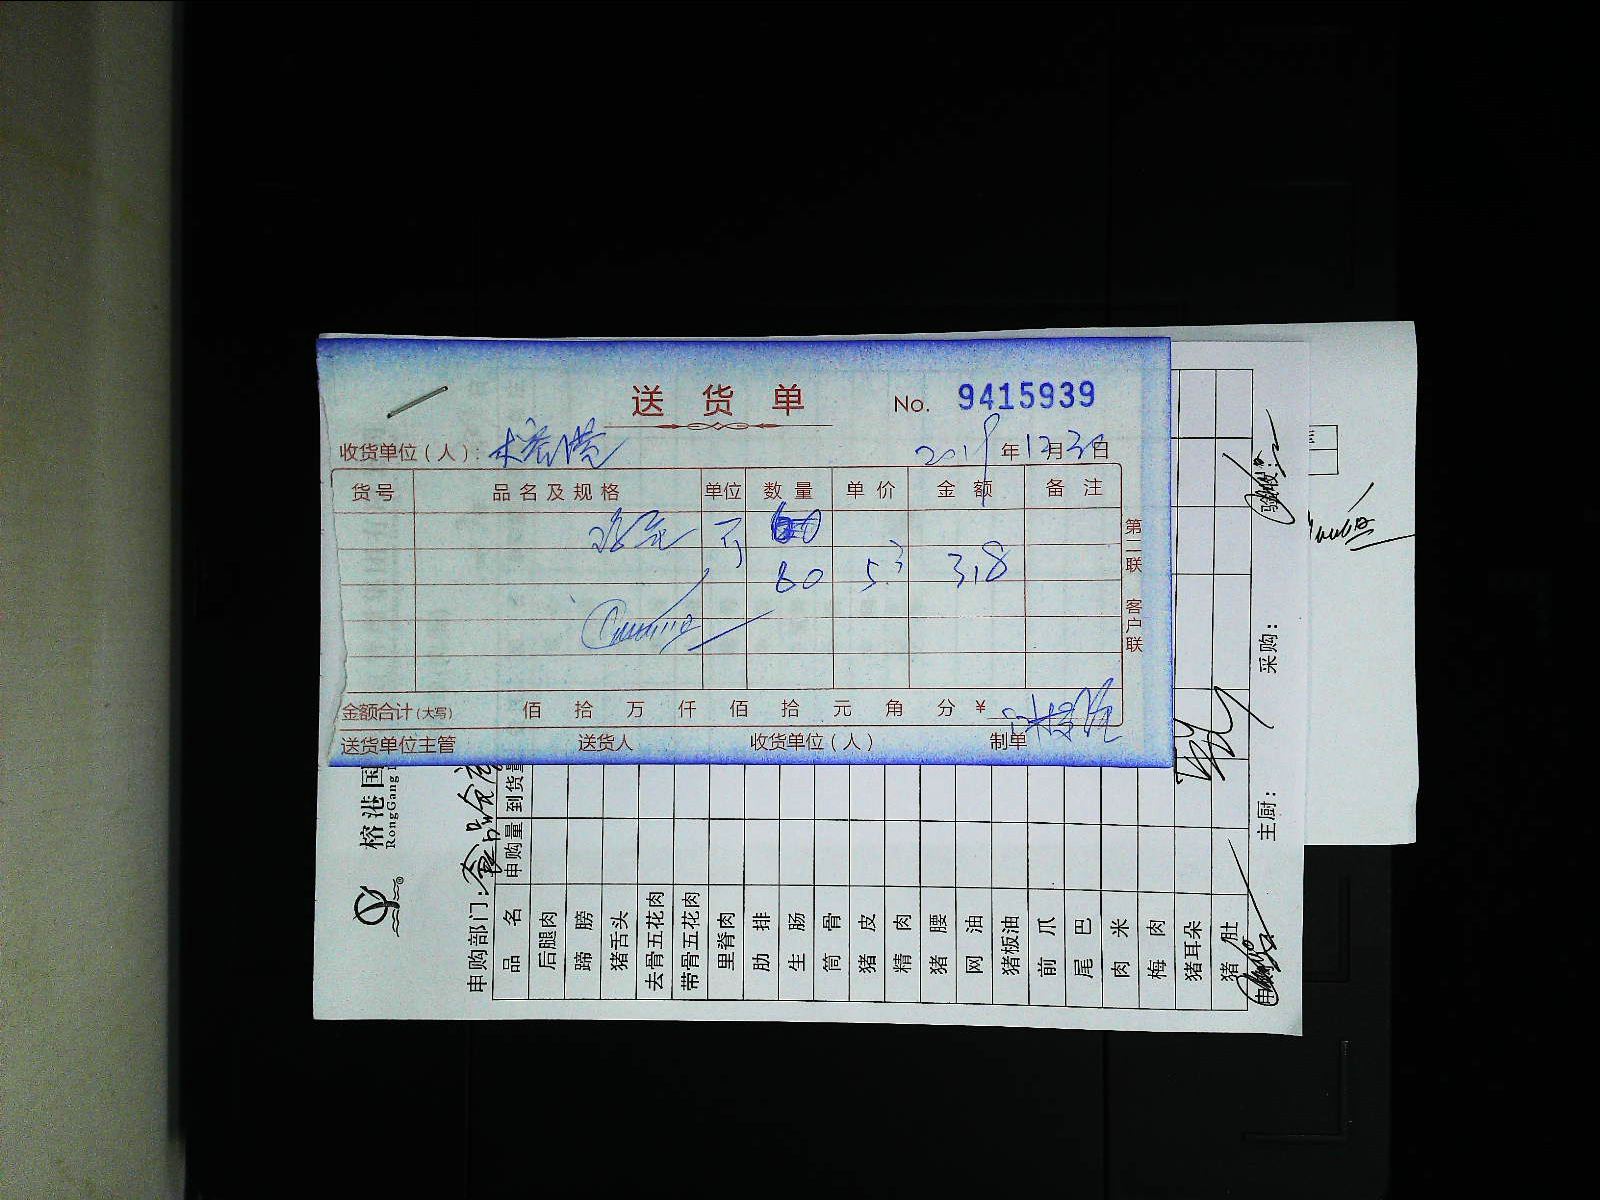 送货单 No. 9415939
收货单位(人): 榕港 2019年12月30日
货号 品名及规格 单位 数量 单价 金额 备注
鸡蛋 斤
60 5.3 318
第二联 客户联
金额合计(大写) 佰 拾 万 仟 佰 拾 元 角 分 ¥
送货单位主管 送货人 收货单位(人) 制单
榕港国
RongGang
申购部门: 食品仓库
品名 申购量 到货量
后腿肉
蹄膀
猪舌头
去骨五花肉
带骨五花肉
里脊肉
肋排
生肠
筒骨
猪皮
精肉
猪腰
网油
猪板油
前爪
尾巴
肉米
梅肉
猪耳朵
猪肚
主厨: 采购: 验收: